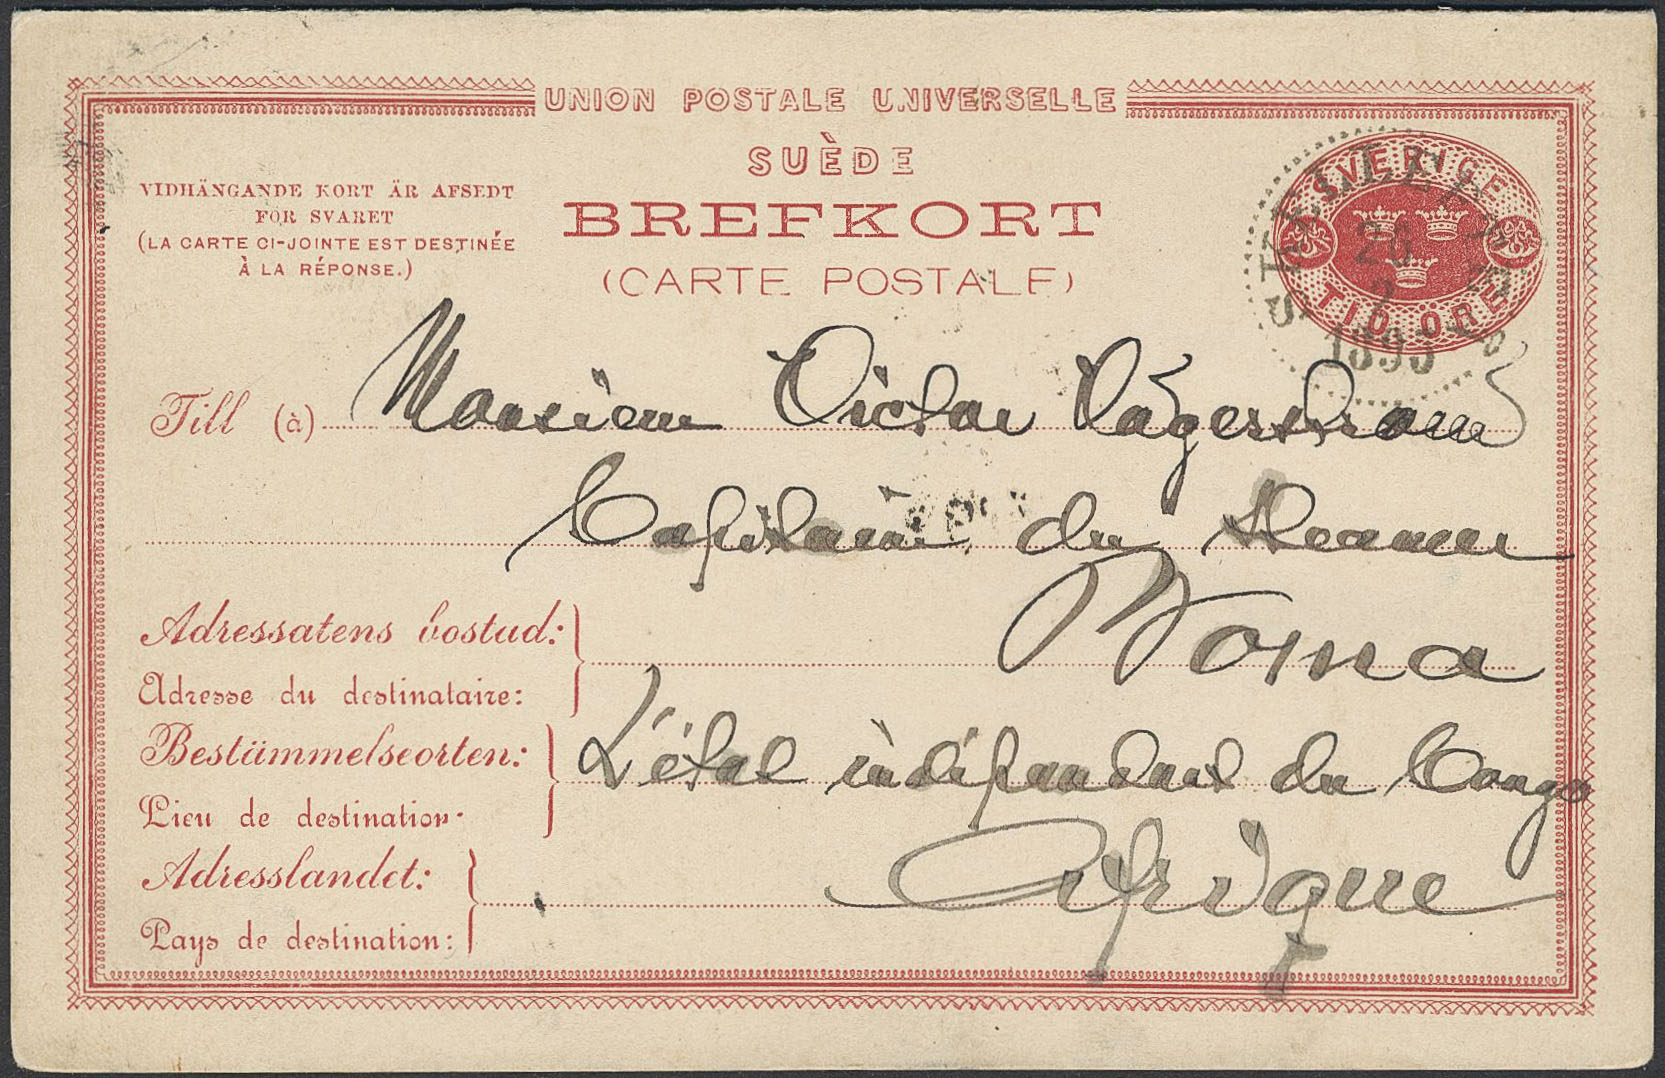 UNION POSTALE UNIVERSELLE
SUÈDE
BREFKORT
(CARTE POSTALE)
VIDHÄNGANDE KORT ÄR AFSEDT
FÖR SVARET
(LA CARTE CI-JOINTE EST DESTINÉE
À LA RÉPONSE.)
SVERIGE
TIO ÖRE
26
2
1895
Till (à) Monsieur Victor Lägerström
Capitaine du Steamer
Adressatens bostad:
Adresse du destinataire:
Boma
Bestämmelseorten:
Lieu de destination:
L'état indépendant du Congo
Adresslandet:
Pays de destination:
Afrique